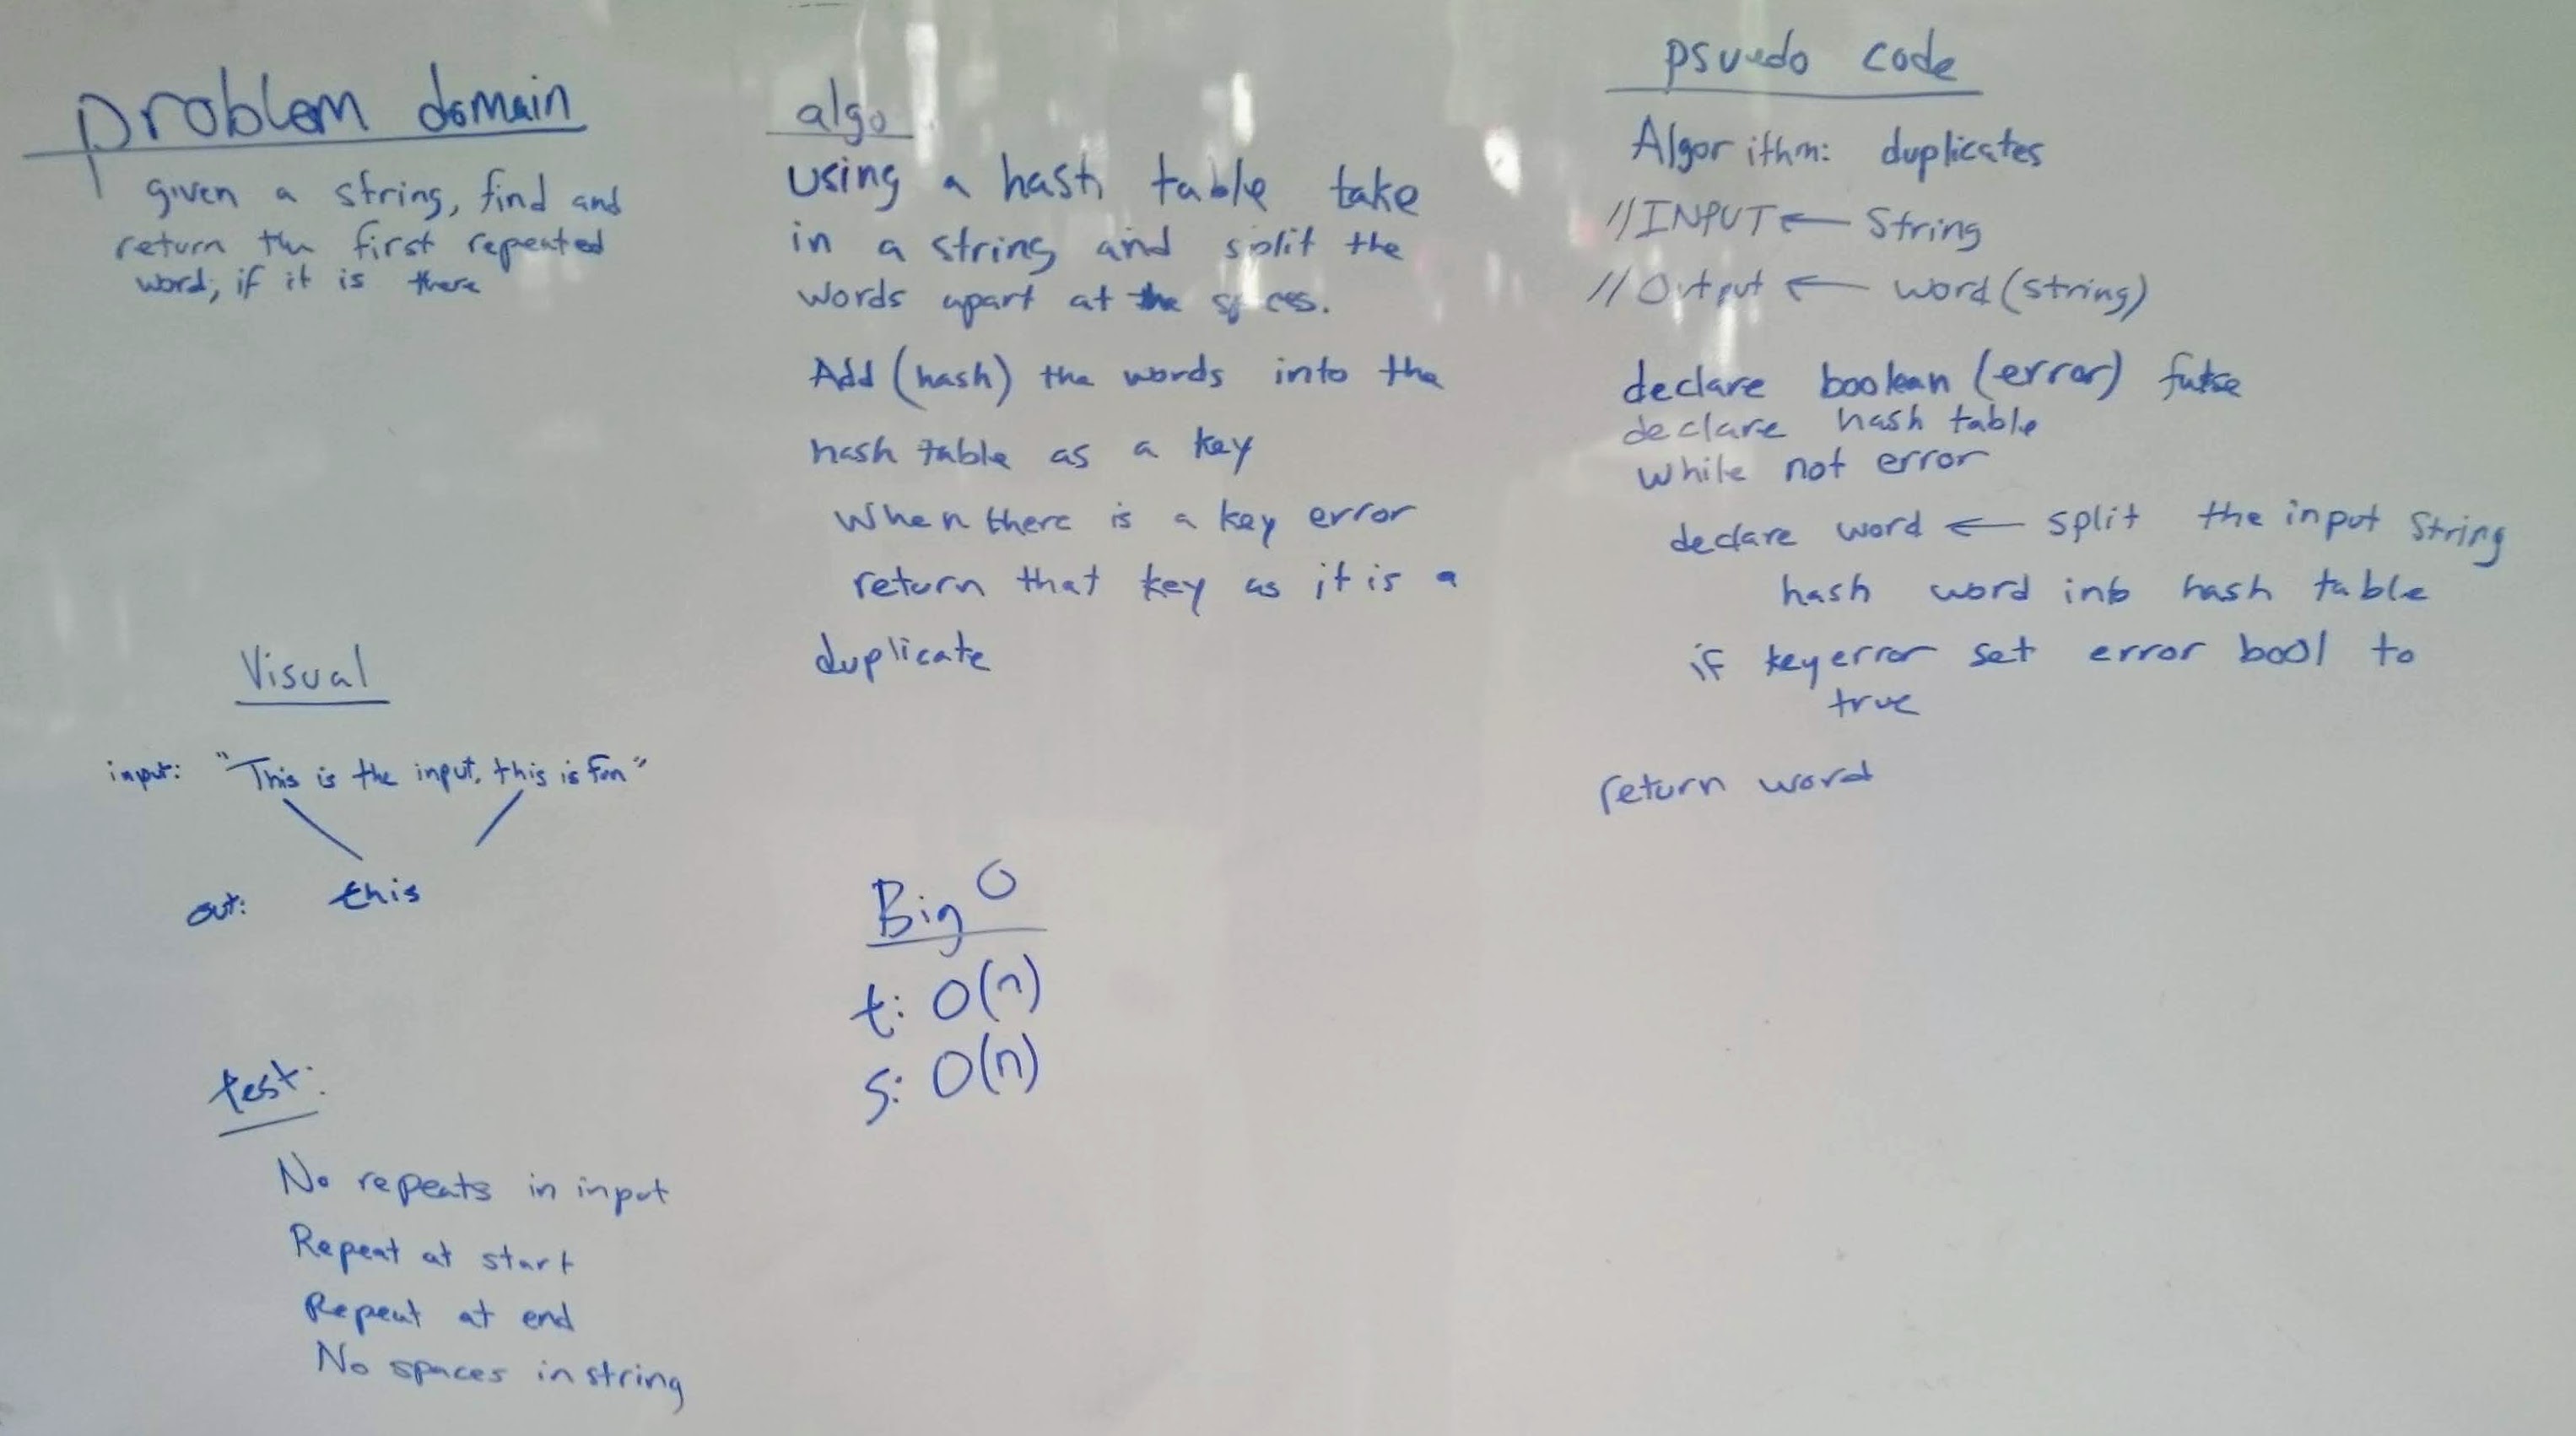 problem domain
given a string, find and
return the first repeated
word, if it is there
Visual
input: "This is the input, this is fun"
out: this
test:
No repeats in input
Repeat at start
Repeat at end
No spaces in string
algo
using a hash table take
in a string and split the
words apart at the
Add (hash) the words into the
hash table as a key
When there is a key error
return that key as it is a
duplicate
Big O
t: O(n)
s: O(n)
psuedo code
Algorithm: duplicates
//INPUT ← String
//Output ← word (string)
declare boolean (error) false
declare hash table
while not error
declare word ← split the input String
hash word into hash table
if key error set error bool to
true
return word